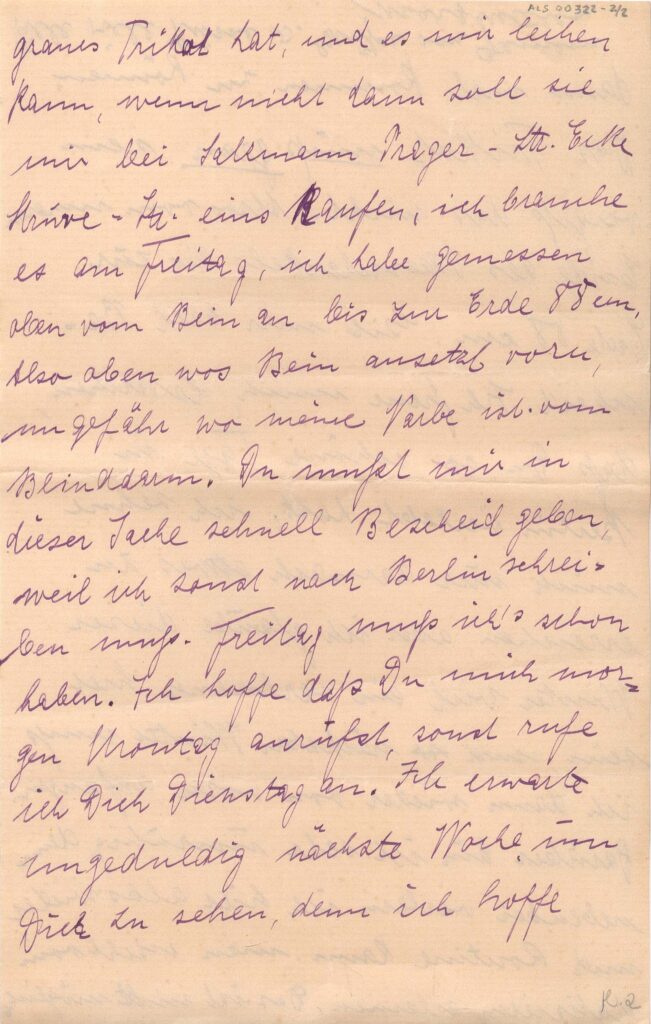 ALS 00322-2/2
graues Trikot hat, und es mir leihen
kann, wenn nicht dann soll sie
mir bei Salzmann Prager-Str. Ecke
Struve-Str. eins Kaufen, ich brauche
es am Freitag, ich habe gemessen
oben vom Bein an bis zur Erde 88 cm,
Also oben wos Bein ansetzt vorn,
ungefähr wo meine Narbe ist vom
Blinddarm. Du mußt mir in
dieser Sache schnell Bescheid geben,
weil ich sonst nach Berlin schrei-
ben muß. Freitag muß ich's schon
haben. Ich hoffe daß Du mich mor-
gen Montag anrufst, sonst rufe
ich Dich Dienstag an. Ich erwarte
ungeduldig nächste Woche um
Dich zu sehen, denn ich hoffe